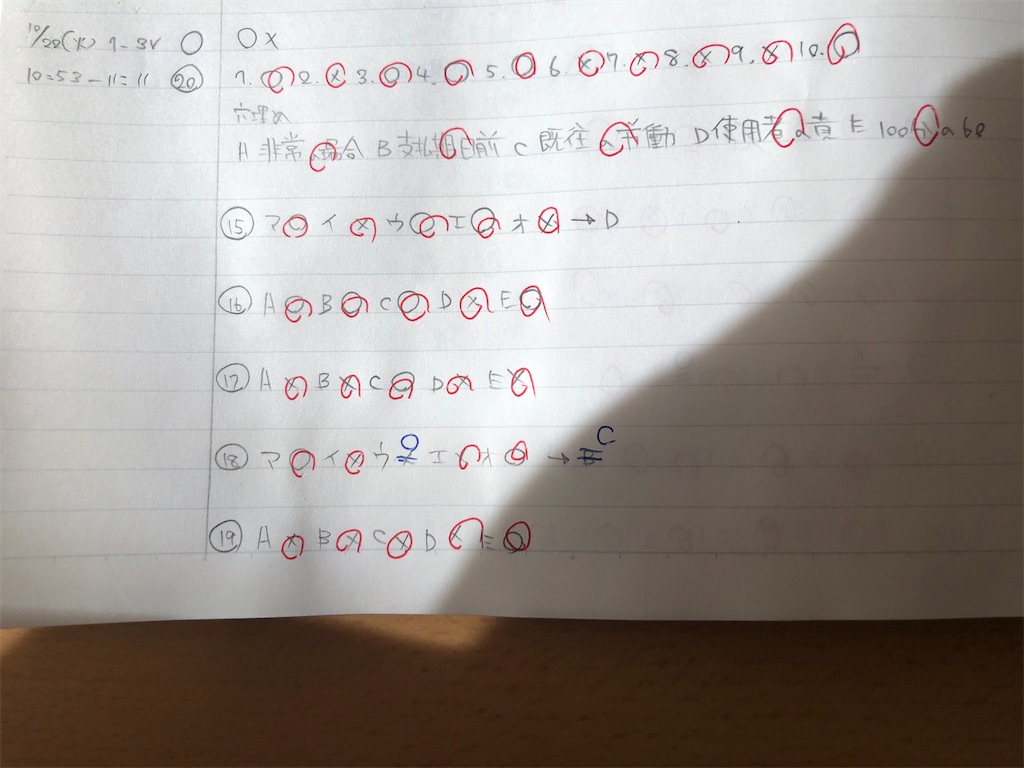 10/28(火) 1-3V ○ ○×
10:53-11:11 ⑳ 1.○ 2.× 3.○ 4.○ 5.○ 6.× 7.× 8.× 9.× 10.○
穴埋め
A 非常の場合 B 支払期日前 C 既往の労働 D 使用者の責 E 100分の60
⑮ ア○ イ× ウ○ エ○ オ× → D
⑯ A○ B○ C○ D× E○
⑰ A× B× C○ D× E×
⑱ ア○ イ× ウ× ○ エ○ オ○ → E C
⑲ A× B× C× D× E○